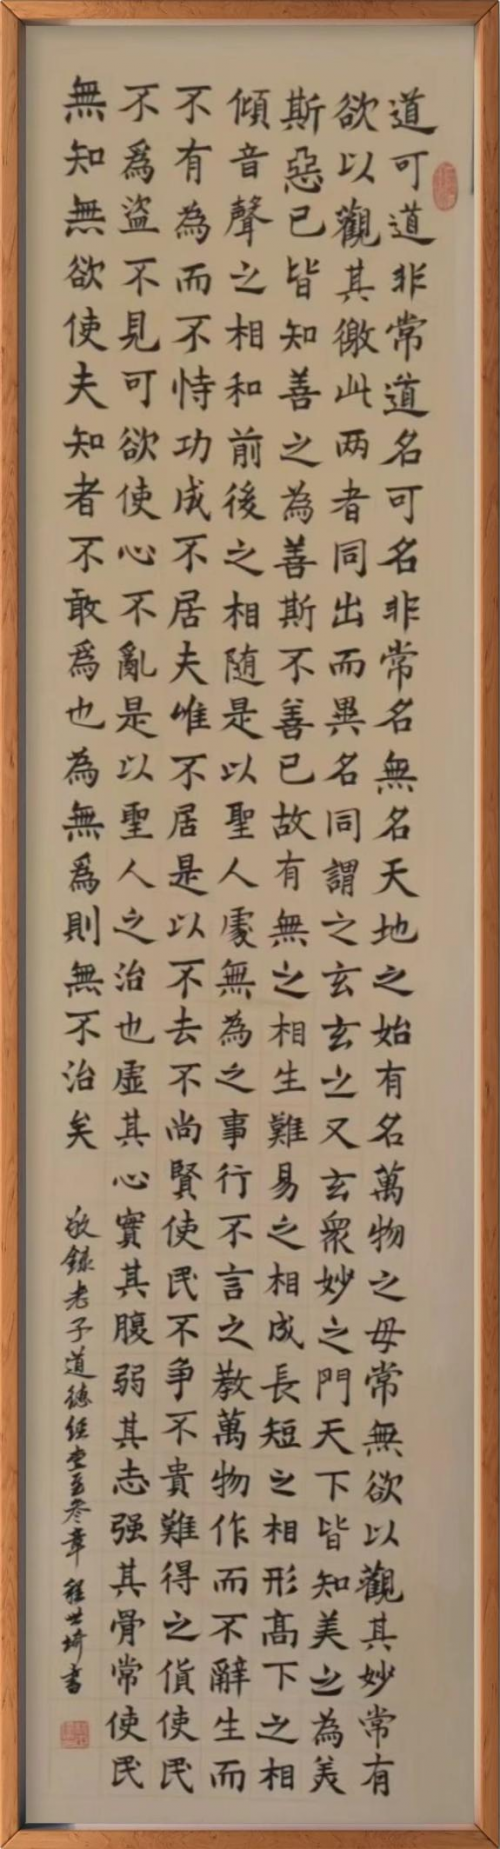 道可道非常道名可名非常名無名天地之始有名萬物之母常無欲以觀其妙常有
欲以觀其徼此两者同出而異名同謂之玄玄之又玄衆妙之門天下皆知美之為美
斯惡已皆知善之為善斯不善已故有無之相生難易之相成長短之相形高下之相
傾音聲之相和前後之相随是以聖人處無為之事行不言之教萬物作而不辭生而
不有為而不恃功成不居夫唯不居是以不去不尚賢使民不争不貴難得之貨使民
不爲盜不見可欲使心不亂是以聖人之治也虛其心實其腹弱其志强其骨常使民
無知無欲使夫知者不敢爲也為無爲則無不治矣
敬錄老子道德经壹至叄章 程世琦書